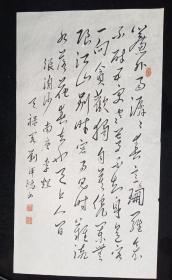 簾外雨潺々春意闌珊羅衾
不耐五更寒夢里不知身是客
一晌貪歡獨自莫憑欄無
限江山別時容易見時難流
水落花春去也天上人間
浪淘沙 南唐 李煜